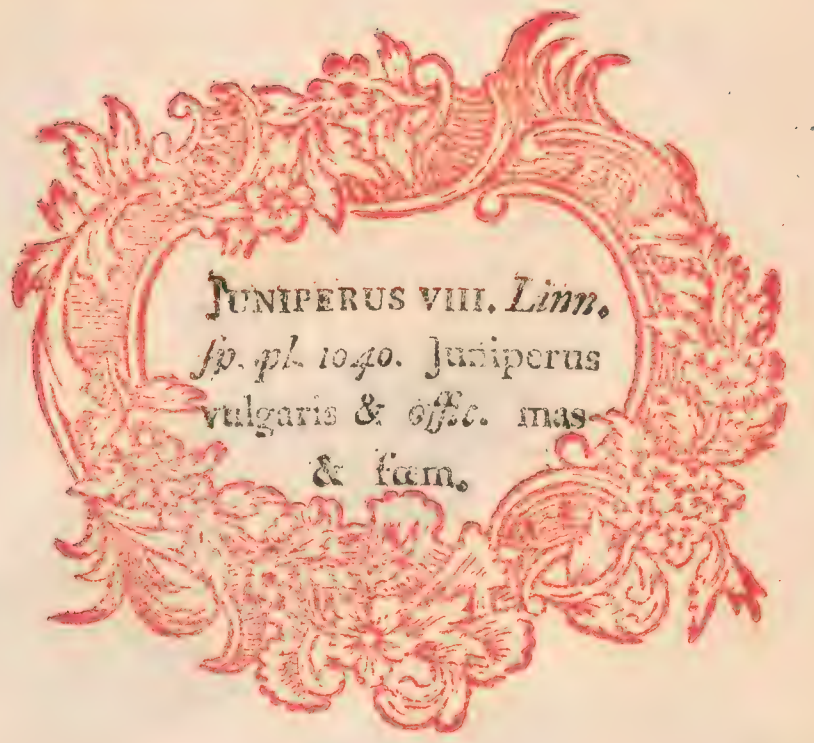 JUNIPERUS VIII. Linn.
ſp. pl. 1040. Juniperus
vulgaris & offic. mas
& fœm.